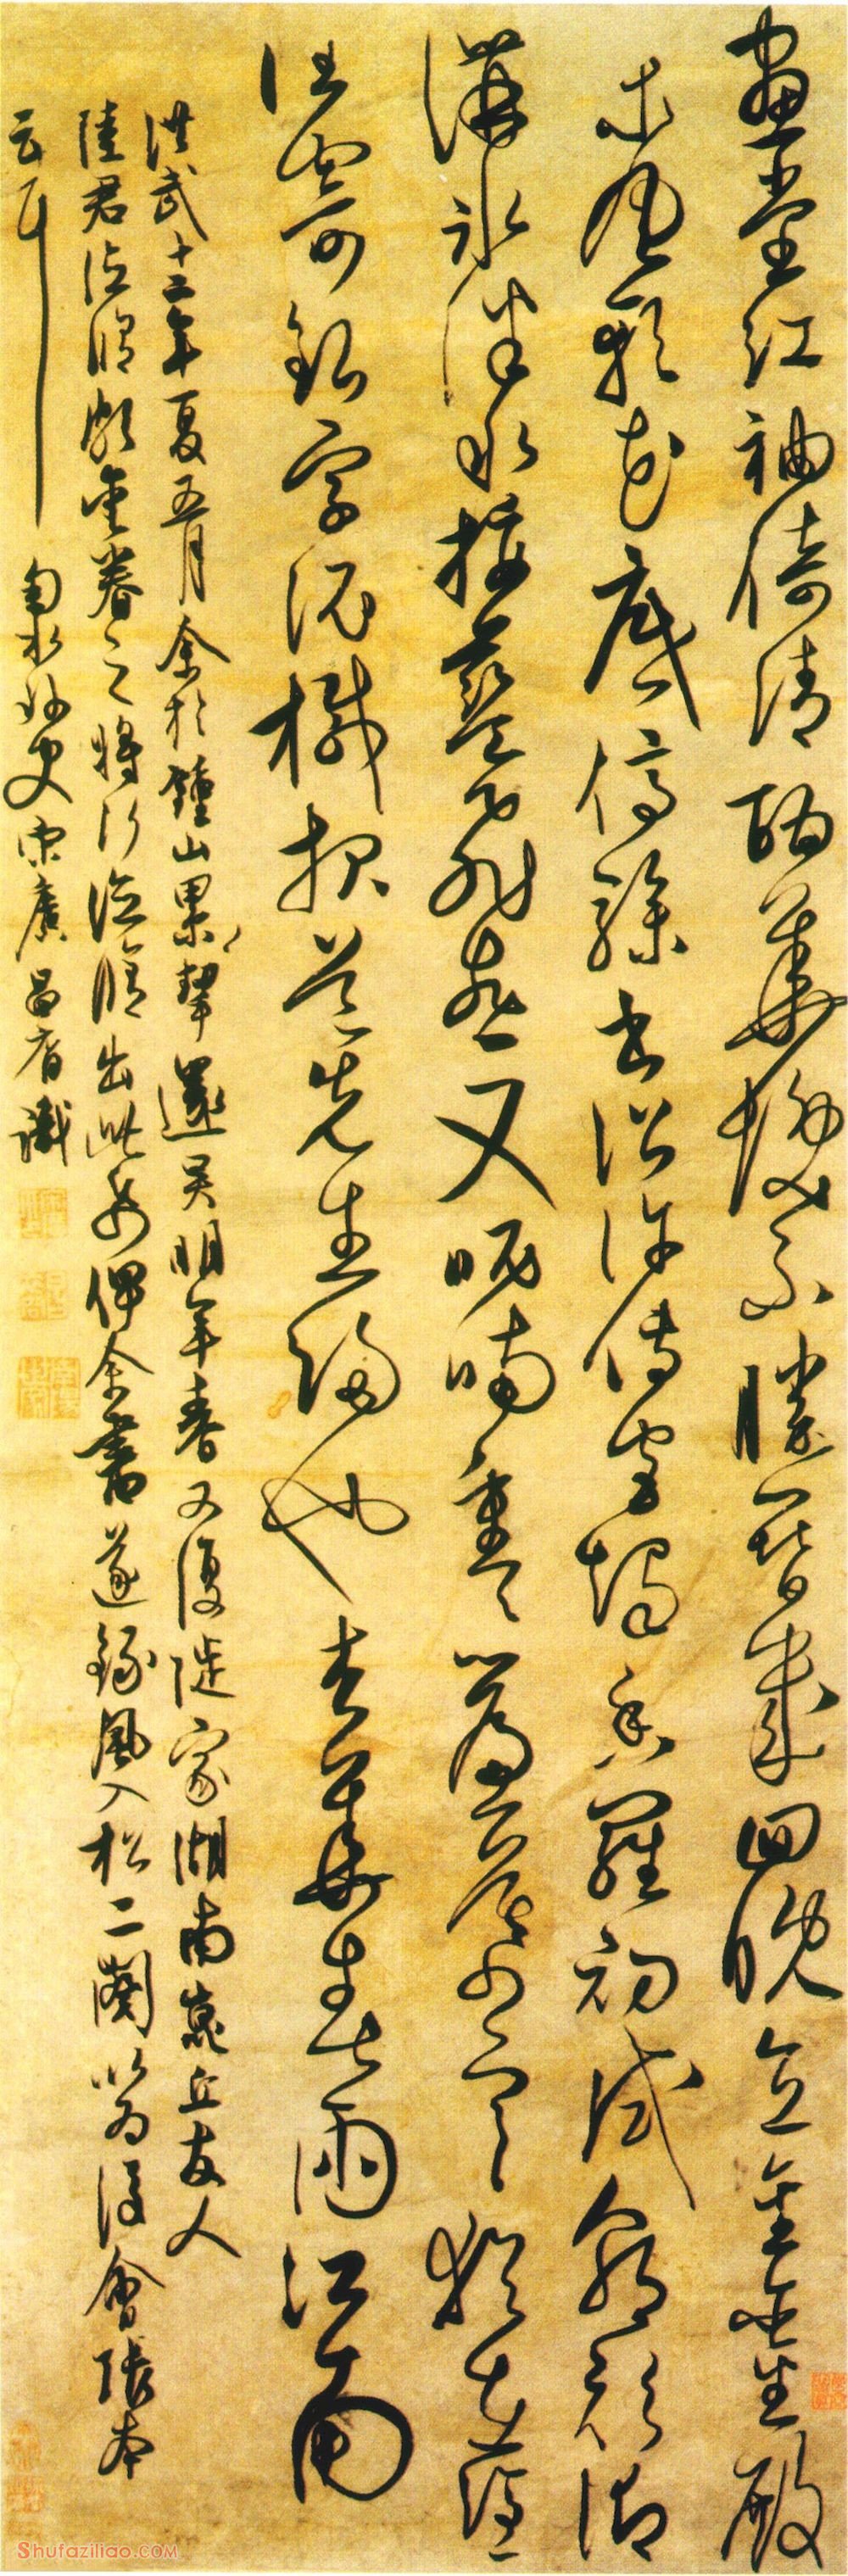 畫堂紅袖倚清酣華髮不勝簪幾回晚直金鑾殿
東風軟花底停驂書詔許傳宮燭香羅初試朝衫御
溝冰泮水挼藍飛燕又呢喃重重簾幕寒猶在憑
誰寄銀字泥緘報道先生歸也杏華春雨江南
洪武十二年夏五月余於鍾山累挈還吳明年春又復徙家湖南崑丘友人
陸君德脩頗重眷之將行德脩出此帋俾余書遂錄風入松二闋以為後會張本
云耳 東海外史宋廣昌裔識
Shufaziliao.com